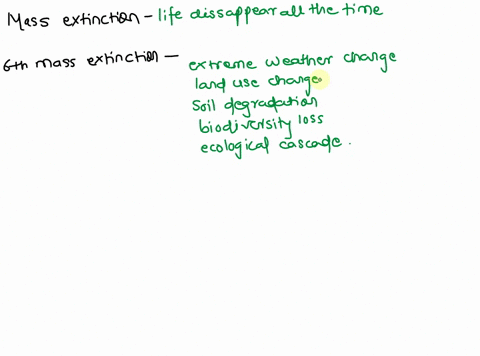 Mass extinction - life dissappear all the time
6th mass extinction - extreme weather change
land use change
soil degradation
biodiversity loss
ecological cascade.